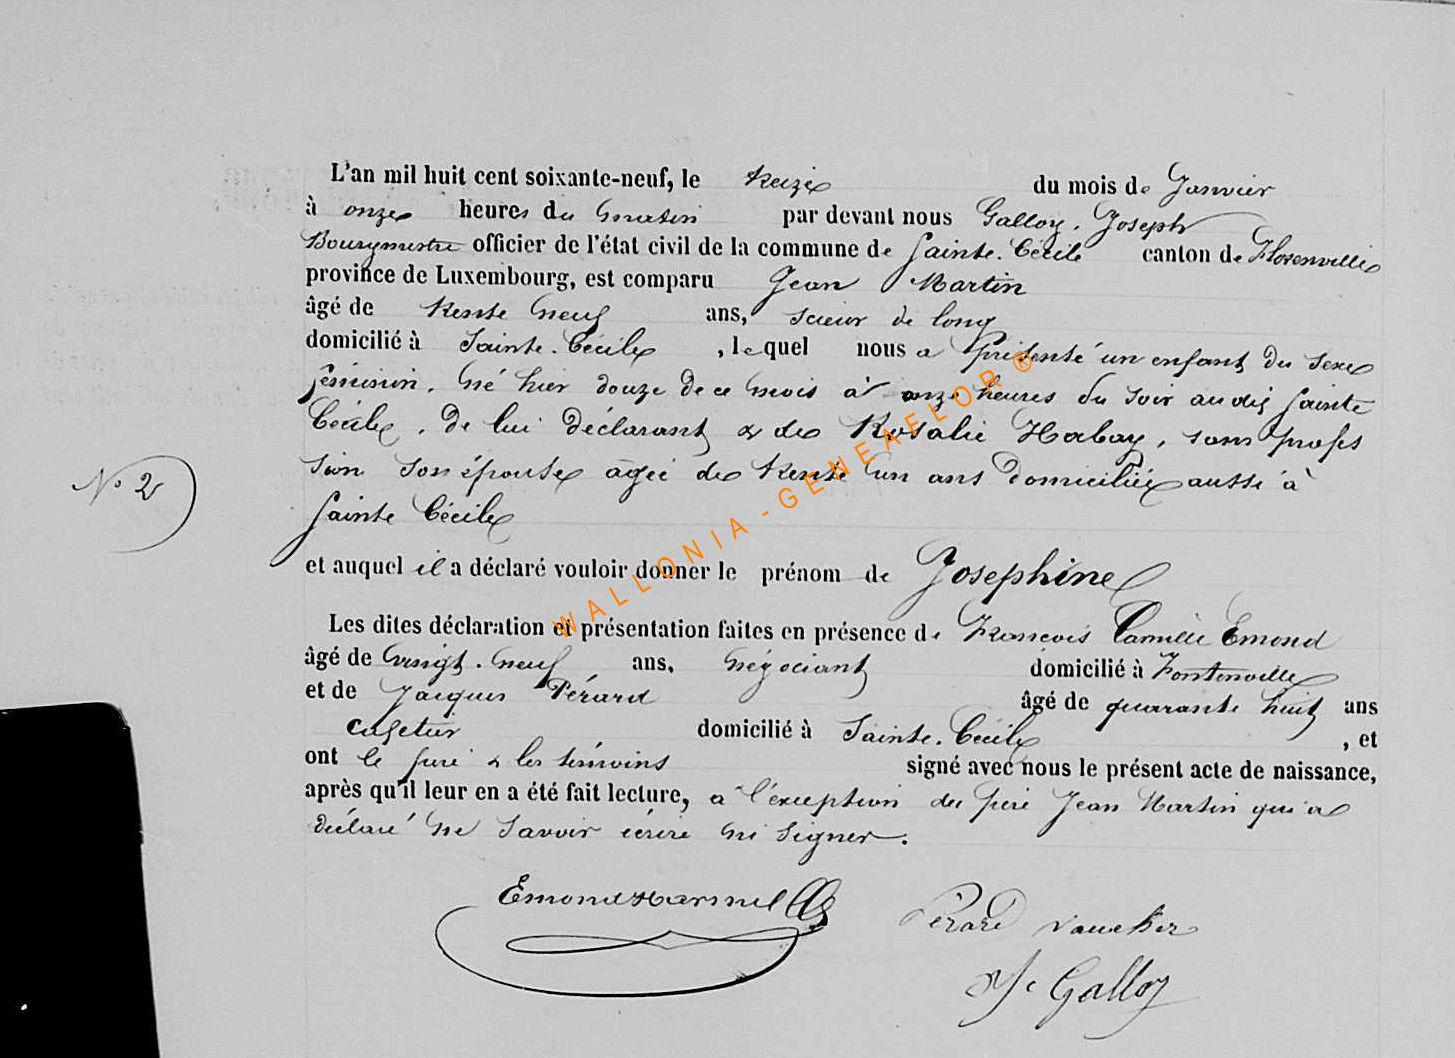 L'an mil huit cent soixante-neuf, le treize du mois de Janvier
à onze heures du matin par devant nous Galloy, Joseph
Bourgmestre officier de l'état civil de la commune de Sainte-Cécile canton de Florenville
province de Luxembourg, est comparu Jean Martin
âgé de trente neuf ans, scieur de long
domicilié à Sainte-Cécile, lequel nous a présenté un enfant du sexe
féminin, né hier douze de ce mois à onze heures du soir audit Sainte
Cécile, de lui déclarant & de Rosalie Habay, sans profes
sion son épouse agée de trente un ans domiciliée aussi à
N° 2
Sainte Cécile
et auquel il a déclaré vouloir donner le prénom de Josephine
Les dites déclaration et présentation faites en présence de François Camille Emond
âgé de vingt-neuf ans, négociant domicilié à
et de Jacques Pérard âgé de quarante huit ans
domicilié à Sainte-Cécile, et
ont le père & les témoins signé avec nous le présent acte de naissance,
après qu'il leur en a été fait lecture, a l'exception du père Jean Martin qui a
déclaré ne savoir écrire ni signer.
Pérard
J. Galloy
WALLONIA - GENEAFLOR ®